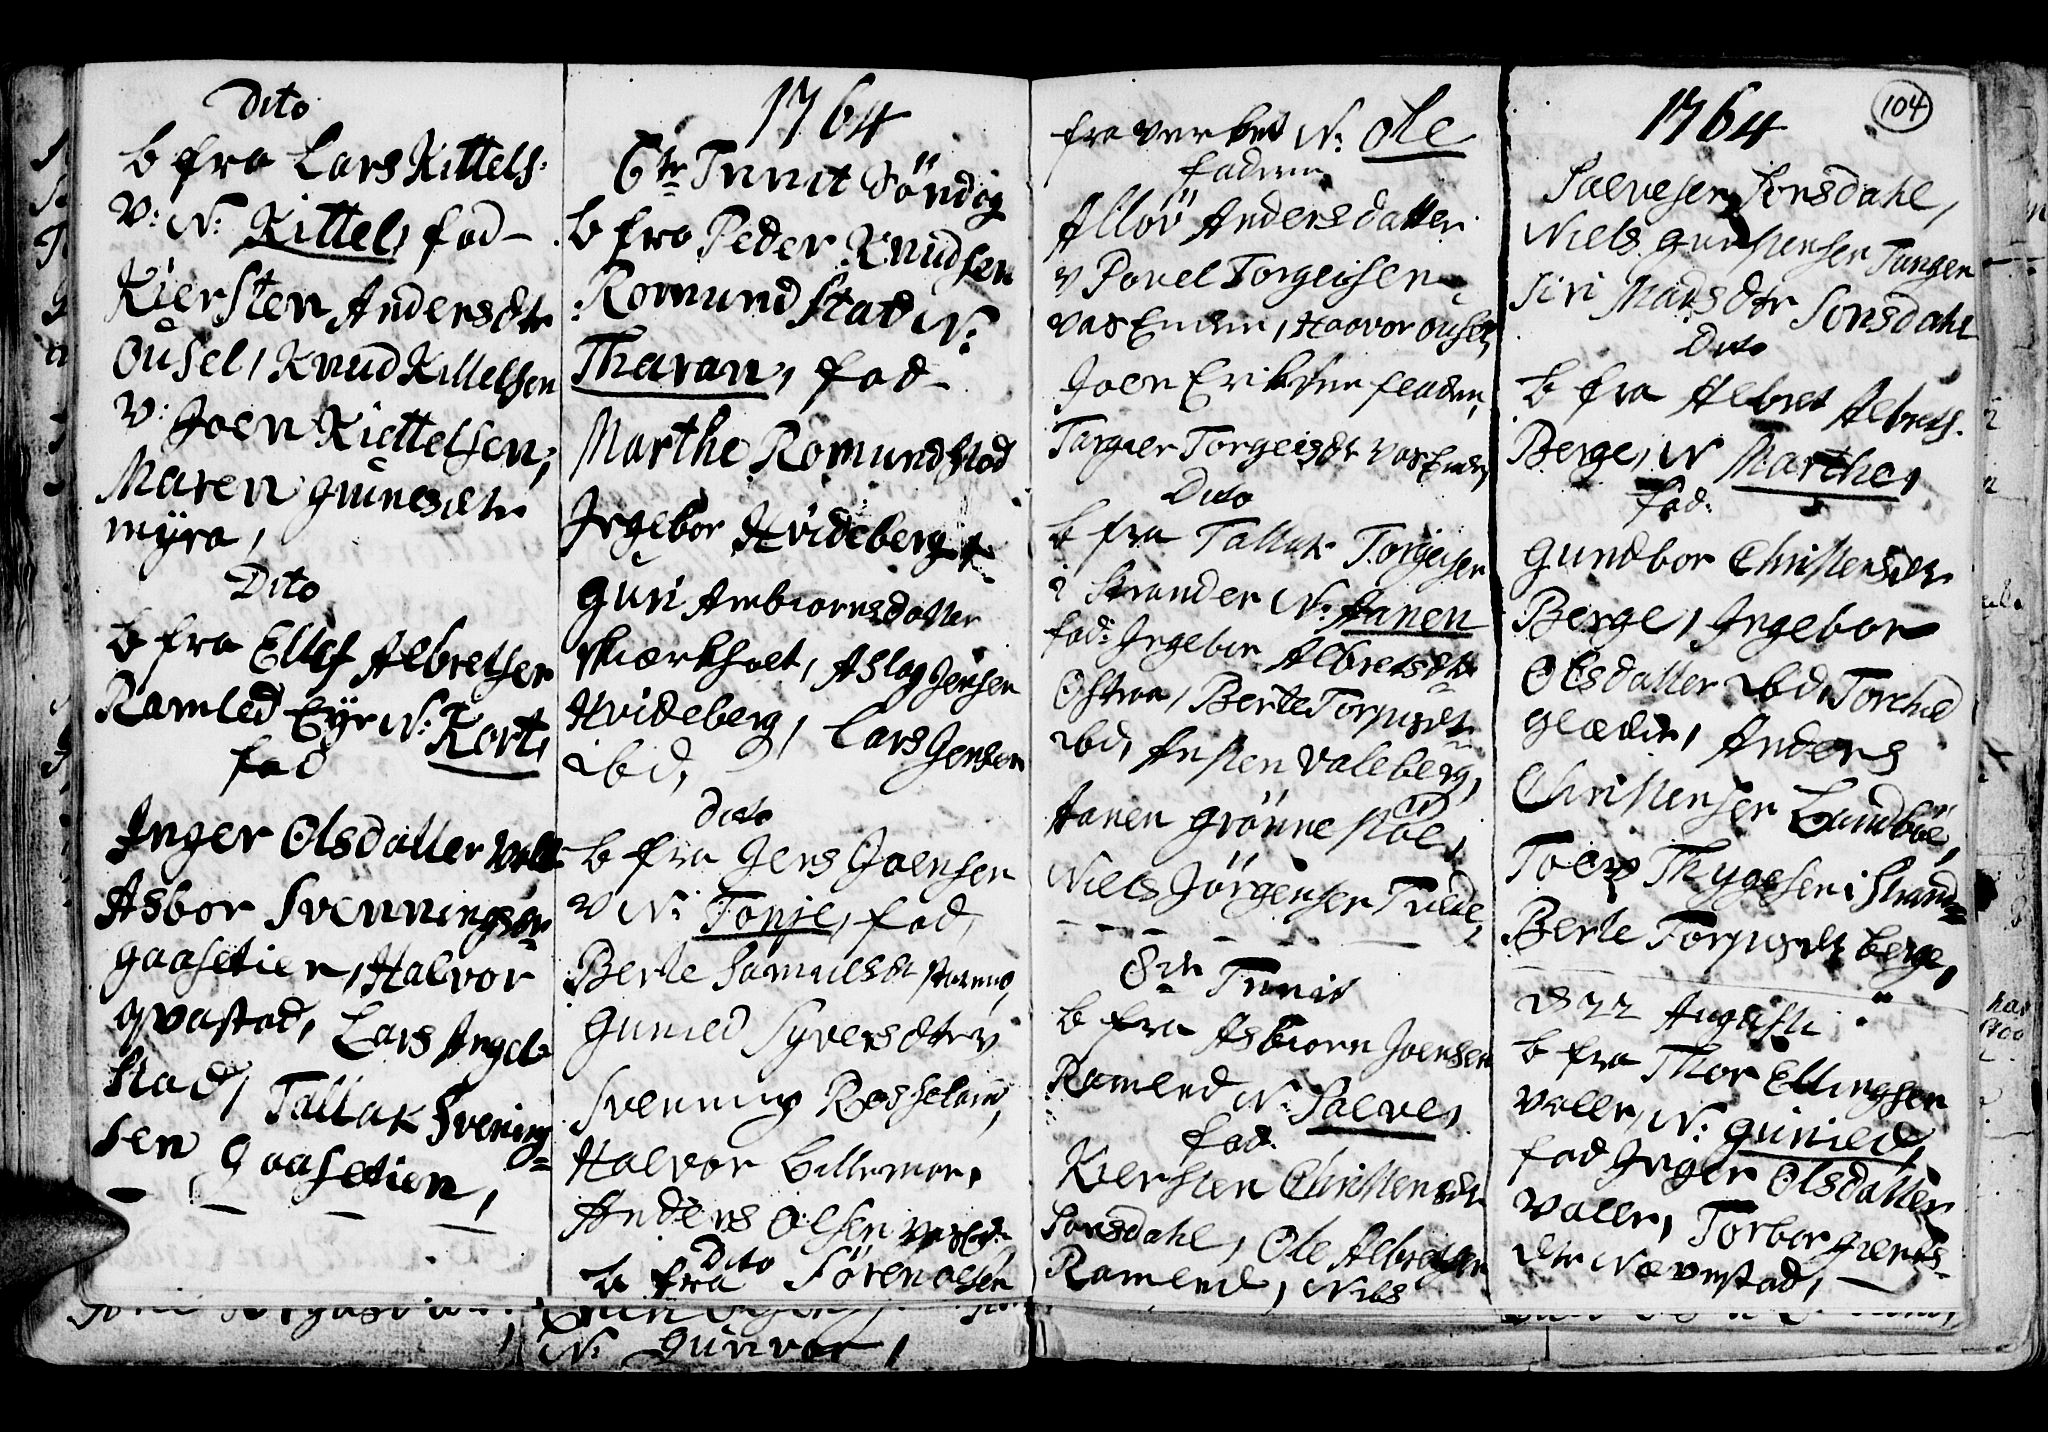 Dito
b fra Lars Kittels:
v: N: Kittel, fad-
Kiersten Andersdtr
Oùsel, Knud Kittelsen
v: Joen Kiettelsen,
Maren gùnesdtr
myra,
Dito
b fra Ellef Albretsen
Ramled Eyr N: Kort,
fad
Inger Olsdatter Valle
Asbor Svenningsdr
gaasetien, Halvor
qvastad, Lars Angel-
stad, Tallak Svening-
sen Gaasetien,
1764
6te Trinit Söndag
b fra Peder Knudsen
Romundstad N:
Tharan, fad-
Marthe Romundstad
Ingebor Hvideberg
Guri Ambiornsdatter
Skiærkholt, Aslag Jensen
Hvideberg, Lars Jensen
ibd,
dito
b fra Jens Joensen
v N: Tonje, fad,
Berte Samuelsdr
Guniled Syversdtr v
Svenning Rosseland,
Halvor Lillemoer,
Anders Olsen
Dito
b fra Sören olsen
N: Gunvor,
104
fra verket N: Ole
fadere
Allöv Andersdatter
v Povel Torgeisen
vas Enden, Haavor Ousel,
Joen Eriksen
Targier Torgeisdtr vas Enden,
Dito
b fra Tallak Torgeisen
i Strander N: Aanen
fad: Ingebor Albretsdtr
Ostraa, Berte Torjusdtr
ibd, Austen Valeberg,
Aanen Grönnestöl,
Niels Jörgensen Tvede,
8de Trinit
b fra Asbiorn Joensen
Ramled N: Salve,
fad:
Kiersten Christensdtr
Sonsdahl, Ole Albretsen
Ramled, Niels
1764
Salvesen Sonsdahl,
Niels Gunstensen Tangen
Siri Madsdtr Sonsdahl
Dito
b fra Albret Albrets.
Berge, N Marthe,
fad:
Gundbor Christensdtr
Berge, Ingebor
Olsdatter ibd, Torchild
Christensen Landböe,
Anders
Toer Thygesen i Strand-
Berte Torjusdtr berge,
D 22 Augusti
b fra Thor Ellingsen
Valle, N: Guniled,
fad Inger Olsdatter
Valle, Torbor gierts-
dtr Nævestad,